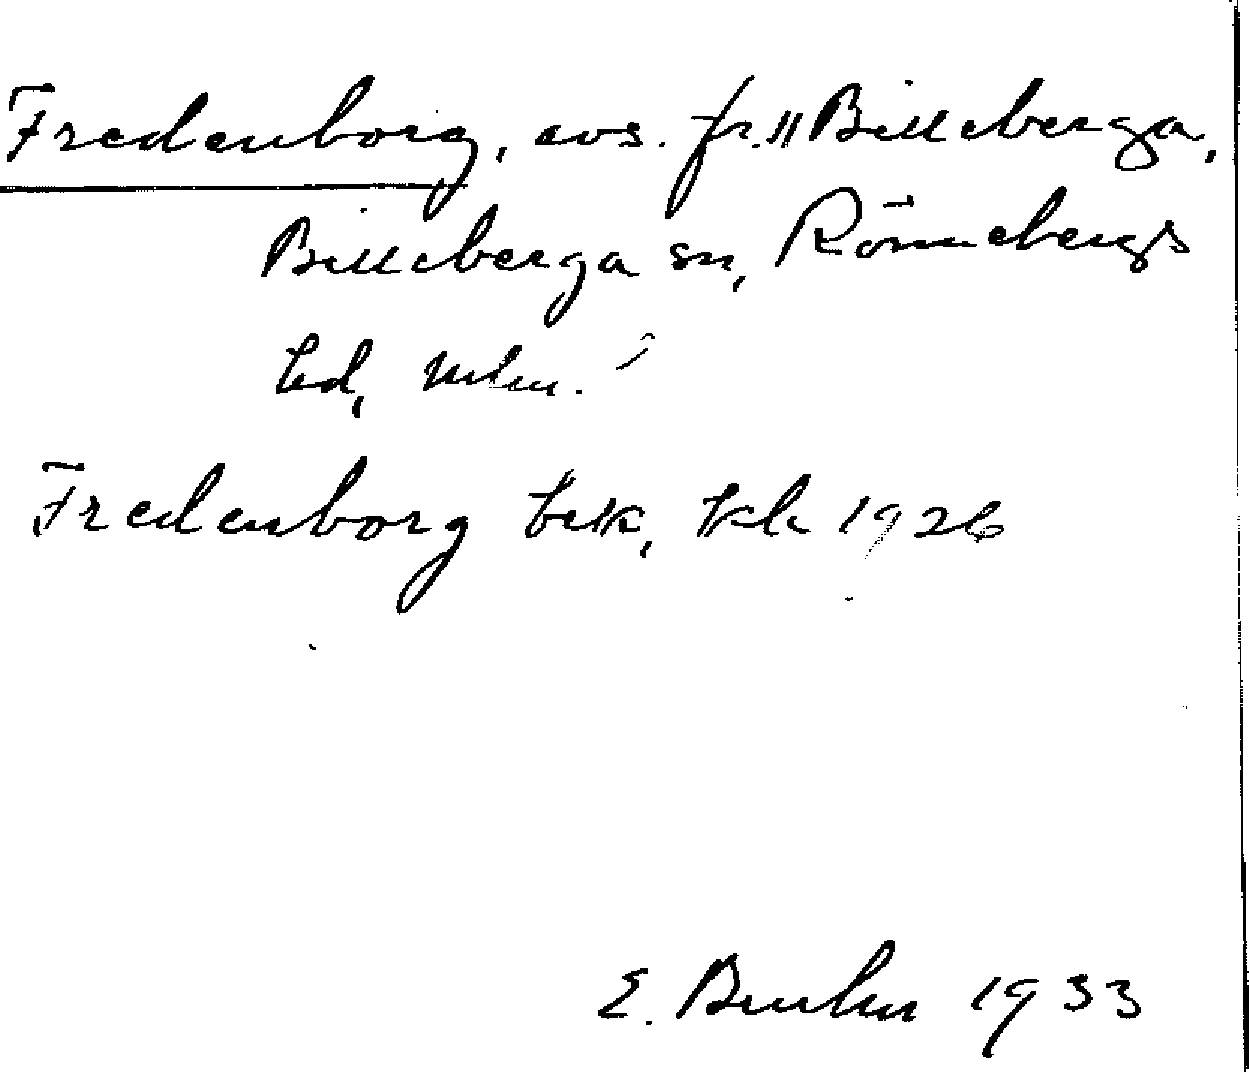 Fredenborg, avs. fr. 11 Billeberga,
Billeberga sn, Rönnebergs
hd, Mlm.
Fredenborg bek, kk 1926
E. 1933